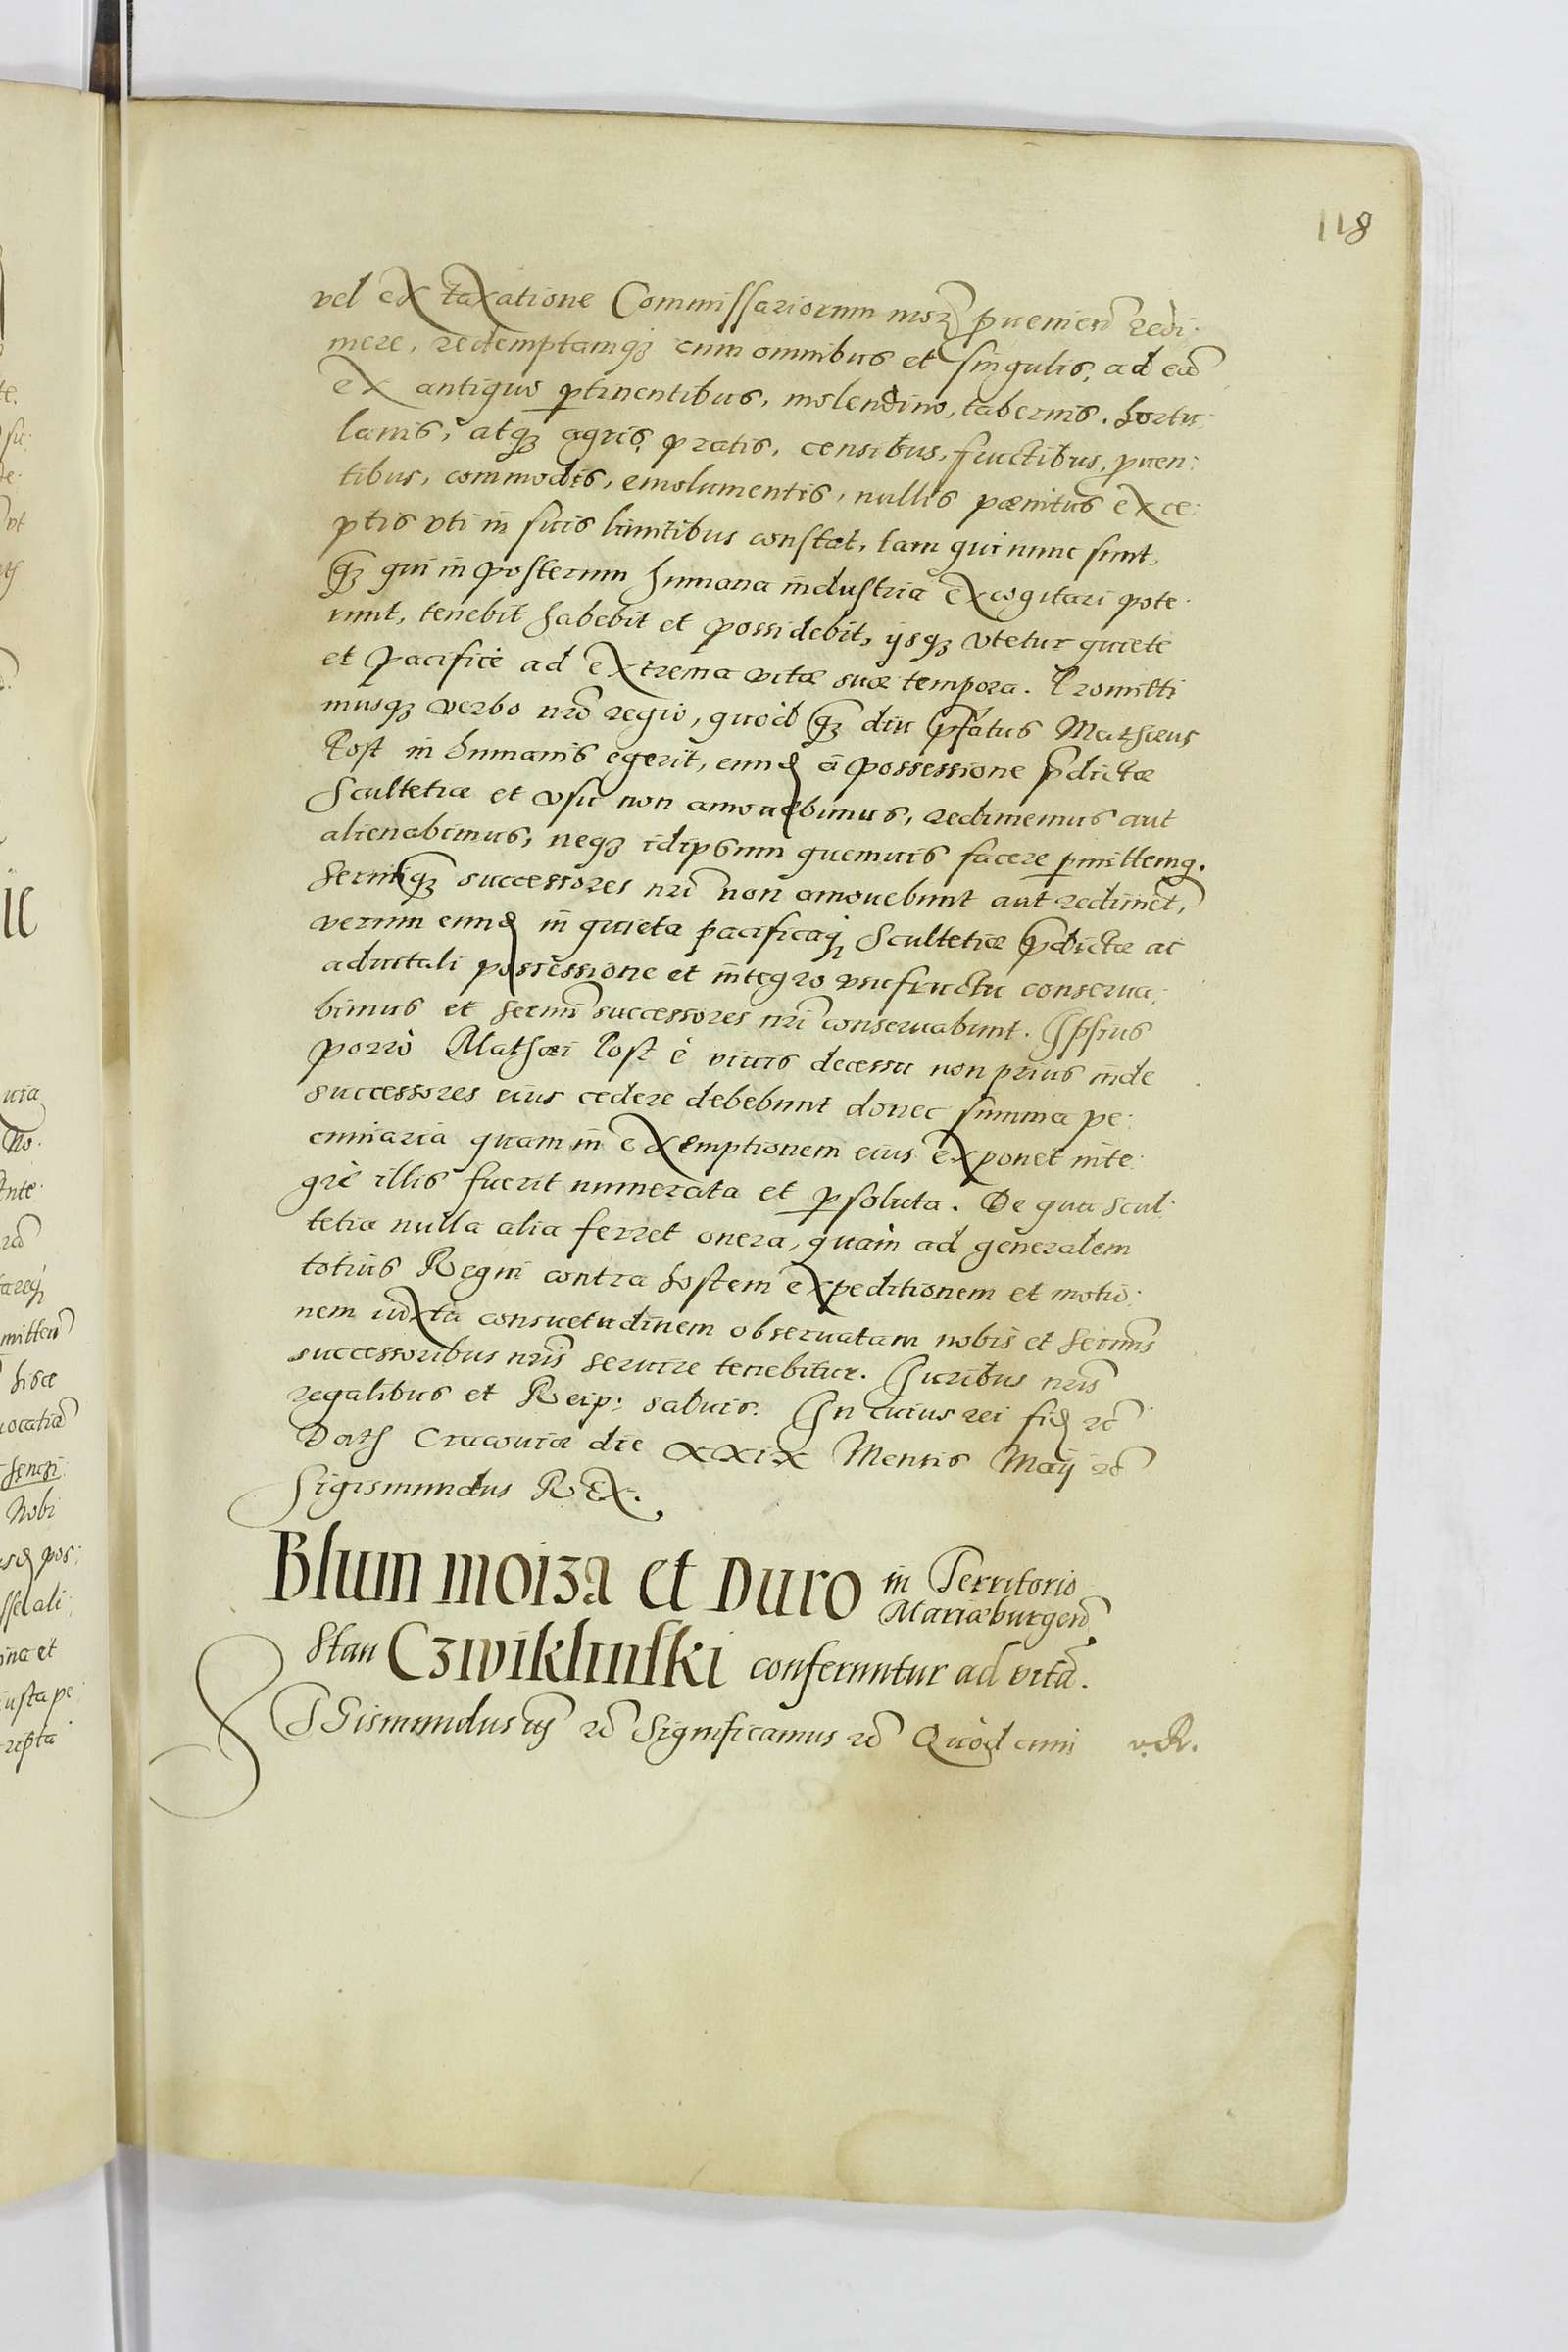 118
vel ex taxatione Commissariorum nrõrz puenien̄ redi:
mere, redemptamqz cum omnibus et singulis, ad eā
ex antiquo ptinentibus, molendino, tabernis, hortu:
lanis, atqz agris, pratis, censibus, fructibus, puen:
tibus, commodis, emolumentis, nullis pænitus exce:
ptis vti in suis limitibus constat, tam qui nunc sunt,
qz qui in posterum humana industria excogitari pote:
runt, tenebit habebit et possidebit, ijsqz vtetur quietè
et pacificè ad extrema vitæ suæ tempora. Promitti
musqz verbo nr̄o regio, quòd qz diu pfatus Mathæus
Post in humanis egerit, eund à possessione p̄dictæ
Scultetiæ et vsu non amouebimus, redimemus aut
alienabimus, neqz idipsum quemuis facere pmittemq.
Sermiqz successores nr̄i non amouebunt aut rediment,
verum eund in quieta pacificaqz Scultetiæ p̄dictæ ac
aduitali possessione et integro vsufructu conserua:
bimus et sermī successores nr̄i conseruabunt. Ipsius
porrò Mathæi Post è viuis decessu non prius inde
successores eius cedere debebunt donec summa pe:
cuniaria quam in exemptionem eius exponet inte:
grè illis fuerit numerata et psoluta. De qua scul:
tetia nulla alia ferret onera, quàm ad generalem
totius Regni contra hostem expeditionem et motio:
nem iuxta consuetudinem obseruatam nobis et sermīs
successoribus nr̄is seruire tenebitur. Iuribus nr̄is
regalibus et Reip: saluis. In cuius rei fid rc̄
Dath Cracouiæ die XXIX Mensis Maij rc̄
Sigismundus REX.
Blum moiza et Duro in Territorio
Mariæburgen̄
Stan Czwiklinski conferuntur ad vitā.
SIGismundus rc̄ Significamus rc̄ Quòd cum v. R.